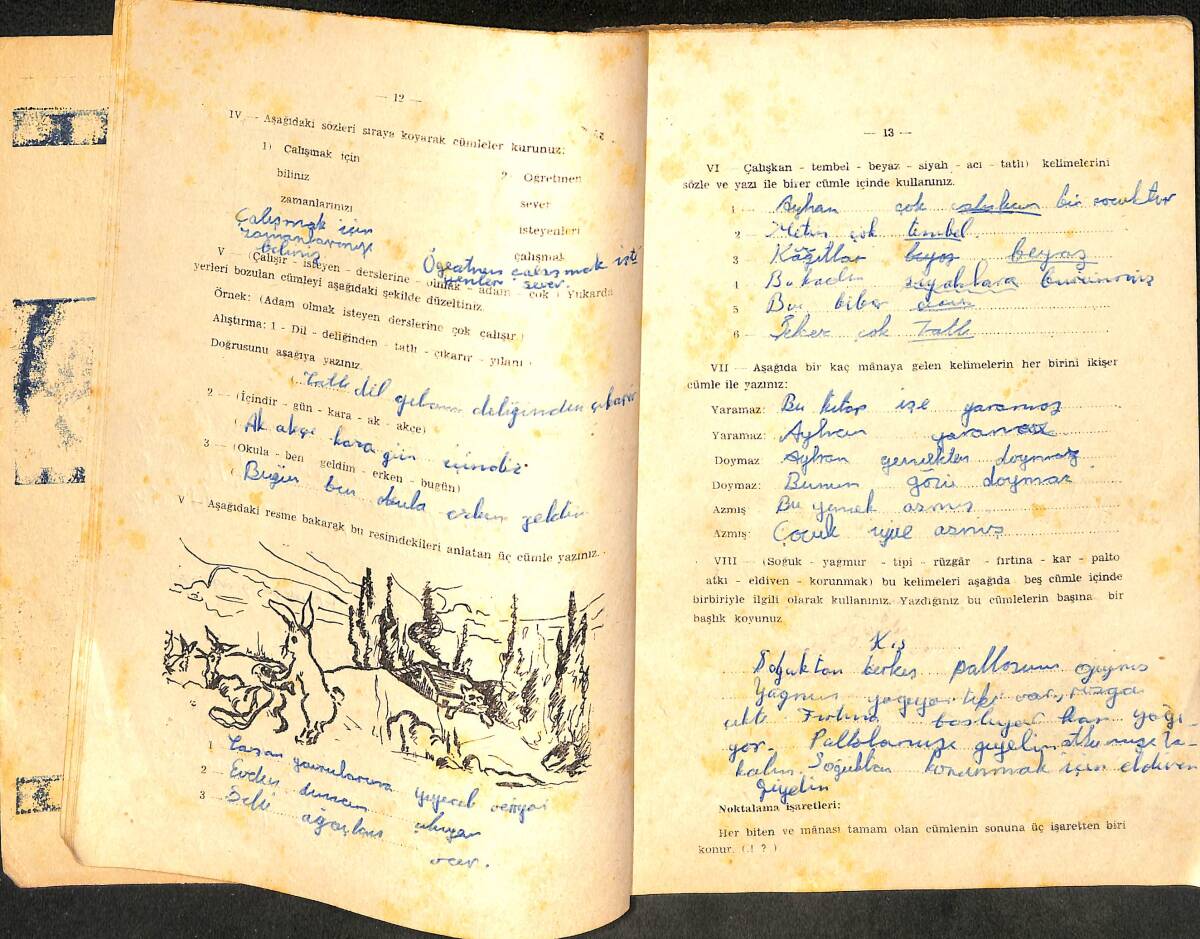 — 12 —
IV — Aşağıdaki sözleri sıraya koyarak cümleler kurunuz:
1) Çalışmak için
biliniz
zamanlarınızı
Çalışmak için
zamanlarınızı
biliniz
2 Öğretmen
sever
isteyenleri
çalışmak
Ögeatmen çalışmak iste
yenleri sever.
V — (Çalışır - isteyen - derslerine - olmak - adam - çok ) Yukarda
yerleri bozulan cümleyi aşağıdaki şekilde düzeltiniz.
Örnek: (Adam olmak isteyen derslerine çok çalışır.)
Alıştırma: 1 - Dil - deliğinden - tatlı - çıkarır - yılanı
Doğrusunu aşağıya yazınız.
(Tatlı dil deliğinden çıkarır
2 — (İçindir - gün - kara - ak - akçe)
(Ak akçe kara gün içindir
3 — (Okula - ben geldim - erken - bugün)
( Bugün ben okula erken geldim
V — Aşağıdaki resme bakarak bu resimdekileri anlatan üç cümle yazınız.
1 Tavşan yavrularına yiyecek veriyor
2 — Evden duman çıkıyor
3 Selvi ağaçları
var.
— 13 —
VI — Çalışkan - tembel - beyaz - siyah - acı - tatlı) kelimelerini
sözle ve yazı ile birer cümle içinde kullanınız.
1 — Ayhan çok bir çocuktur
2 — Metin çok tembel.
3 Kâğıtlar beyaz beyaz
4 Bu kadın siyahlara bürünmüş
5 Bu biber acıdır
6 Şeker çok Tatlı
VII — Aşağıda bir kaç mânaya gelen kelimelerin her birini ikişer
cümle ile yazınız:
Yaramaz: Bu kitap işe yaramaz
Yaramaz: Ayhan yaramaz
Doymaz Ayhan yemekten doymaz
Doymaz: Bunun gözü doymaz
Azmış Bu yemek azmış
Azmış: Çocuk azmış
VIII — (Soğuk - yağmur - tipi - rüzgâr - fırtına - kar - palto
atkı - eldiven - korunmak) bu kelimeleri aşağıda beş cümle içinde
birbiriyle ilgili olarak kullanınız. Yazdığınız bu cümlelerin başına bir
başlık koyunuz
Kış
Soğuktan herkes paltosunu giymiş
Yağmur yağıyor var, rüzga
çıktı Fırtına başlıyor kar yağı-
yor. Paltolarımızı giyelim atkımızı ta-
kalım. Soğuktan korunmak için eldiven
giyelim
Noktalama işaretleri:
Her biten ve mânası tamam olan cümlenin sonuna üç işaretten biri
konur. (.! ? )